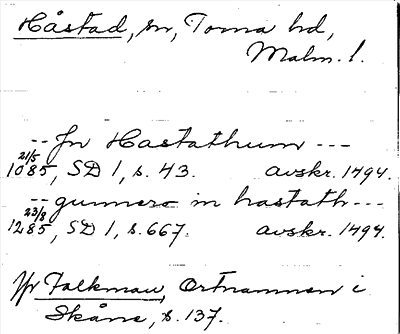 Håstad, sn, Torna hd,
Malm. l.
-- Jn Hastathum ---
21/5 1085, SD 1, s. 43. avskr. 1494.
-- gunnero in hastath ---
23/8 1285, SD 1, s. 667. avskr. 1494.
Jfr Falkman, Ortnamnen i
Skåne, s. 137.